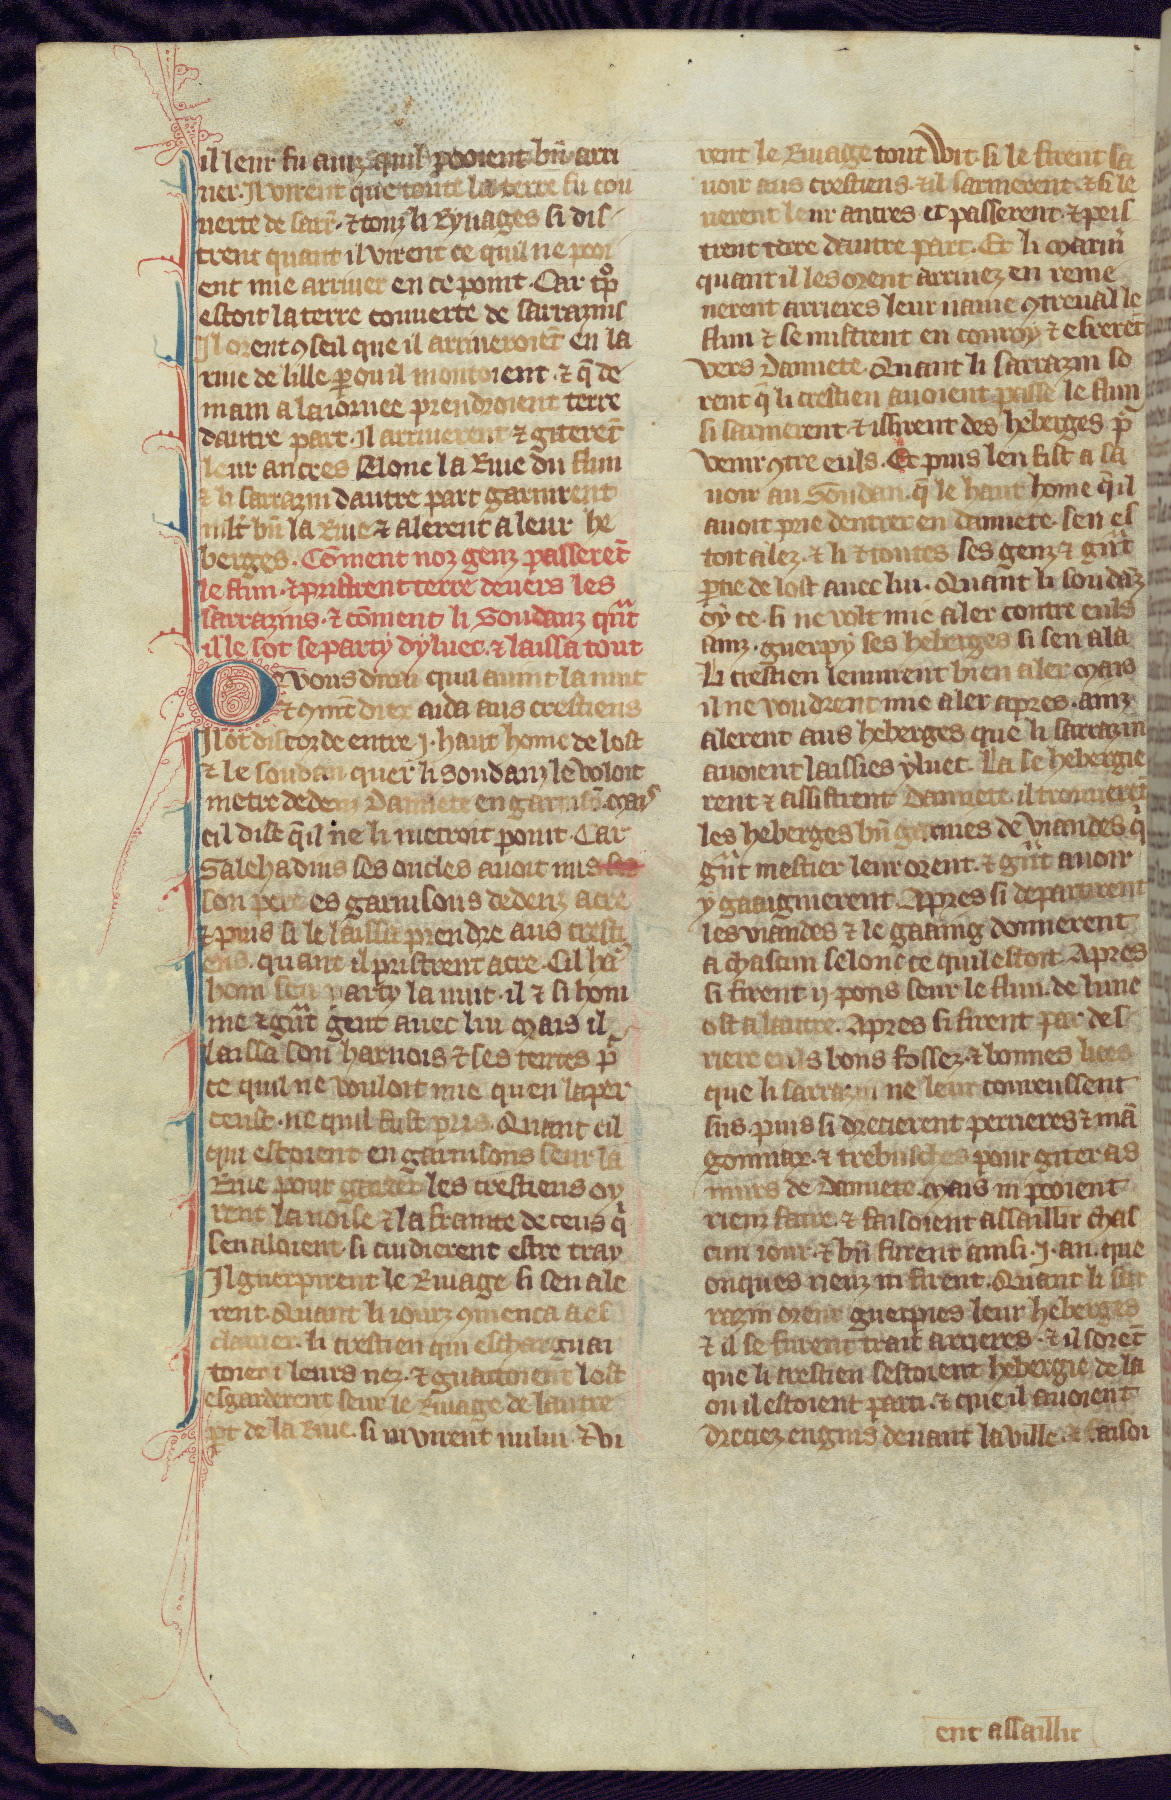 il leur fu ainz quil pooient bn̄ arri
uer. Il virent que toute la terre fu cou
uerte de sarr̄. ⁊ touz li Ryuages si dis
trent quant il virent ce quil ne pooi
ent mie arriuer en ce point. Car tp̄o
estoit la terre couuerte de sarrazins
Il orent ꝯseil que il arriueroiēt en la
riue de lille ꝑ ou il montoient. ⁊ q̄ de
main a la iornee prendroient terre
dautre part. Il arriuerent ⁊ giterēt
leur ancres selonc la Riue du flun
⁊ li sarrazin dautre part garnirent
mlt̄ bn̄ la Riue ⁊ alerent a leur he
berges. Cōment noz genz passerēt
le flun. ⁊ pristrent terre deuers les
sarrazins. ⁊ cōment li Soudanz qn̄t
il le sot se party dyluec. ⁊ laissa tout
Or vous dirai quil auint la nuit
⁊ ꝯmt̄ diex aida aus crestiens
Il ot discorde entre .j. haut home de lost
⁊ le soudan quer li soudanz le voloit
metre dedenz Damiete en garnisō. mais
cil dist q̄il ne li metroit point. Car
Salehadins ses oncles auoit mis
son pere es garnisons dedenz acre
⁊ puis si le laissa prendre aus cresti
ens. quant il pristrent acre. Cil hā
hom sen party la nuit. il ⁊ si hom
me ⁊ gn̄t gent auec lui mais il
laissa son harnois ⁊ ses tentes p̄
ce quil ne vouloit mie quen laper
ceust. ne quil fust pris. Quant cil
qui estoient en garnisons seur la
Riue pour gaitier les crestiens oy
rent la noise ⁊ la frainte de ceus q̄
sen aloient. si cuidierent estre tray
Il guerpirent le Riuage si sen ale
rent. Quant li iourz ꝯmenca a es
clairier. li crestien qui eschargai
toient leurs nez. ⁊ guaitoient lost
esgarderent seur le Riuage de lautre
pt de la Riue. si ni virent nului. ⁊ vi
rent le Riuage tout Wit. si le firent sa
uoir aus crestiens. ⁊ il sarmerent. ⁊ si le
uerent leur ancres et passerent. ⁊ pris
trent terre dautre part. Et li marin̄
quant il les orent arriuez en reme
nerent arrieres leur nauie ꝯtreual le
flun ⁊ se mistrent en conroy ⁊ errerēt
vers Damiete. Quant li sarrazin so
rent q̄ li crestien auoient passe le flun
si sarmerent ⁊ issirent des heberges p̄
venir ꝯtre euls. Et puis len fist a sa
uoir au Soudan. q̄ le haut home q̄il
auoit prie dentrer en damiete. sen es
toit alez. ⁊ li ⁊ toutes ses genz ⁊ gn̄t
ꝑtie de lost auec lui. Quant li soudāz
oy ce. si ne volt mie aler contre euls
ainz. guerpy ses heberges si sen ala
Li crestien leuirent bien aler mais
il ne voudrent mie aler apres. ainz
alerent aus heberges que li sarrazin
auoient laissies yluec. La se hebergie
rent ⁊ assistrent Damiete. il trouuerēt
les heberges bn̄ garnies de viandes q̄
gn̄t mestier leur orent. ⁊ gn̄t auoir
y gaaignierent. Apres si departirent
les viandes ⁊ le gaaing donnerent
a chascun selonc ce quil estoit. Apres
si firent ij pons seur le flun. de lune
ost a lautre. Apres si firent par des
riere euls bons fossez. ⁊ bonnes lices
que li sarrazin ne leur coureussent
sus. puis si drecierent perrieres ⁊ mā
gonniax. ⁊ trebusches pour giter as
murs de Damiete. mais ni pooient
rienz faire. ⁊ faisoient assaillir chas
cun iour. ⁊ bn̄ furent ainsi .j. an. que
onques rienz ni firent. Quant li sar
razin orent guerpies leur heberges
⁊ il se furent trait arrieres. ⁊ il sorēt
que li crestien sestoient hebergie de la
ou il estoient parti. ⁊ que il auoient
dreciez engins deuant la ville. ⁊ faisoi
ent assaillir